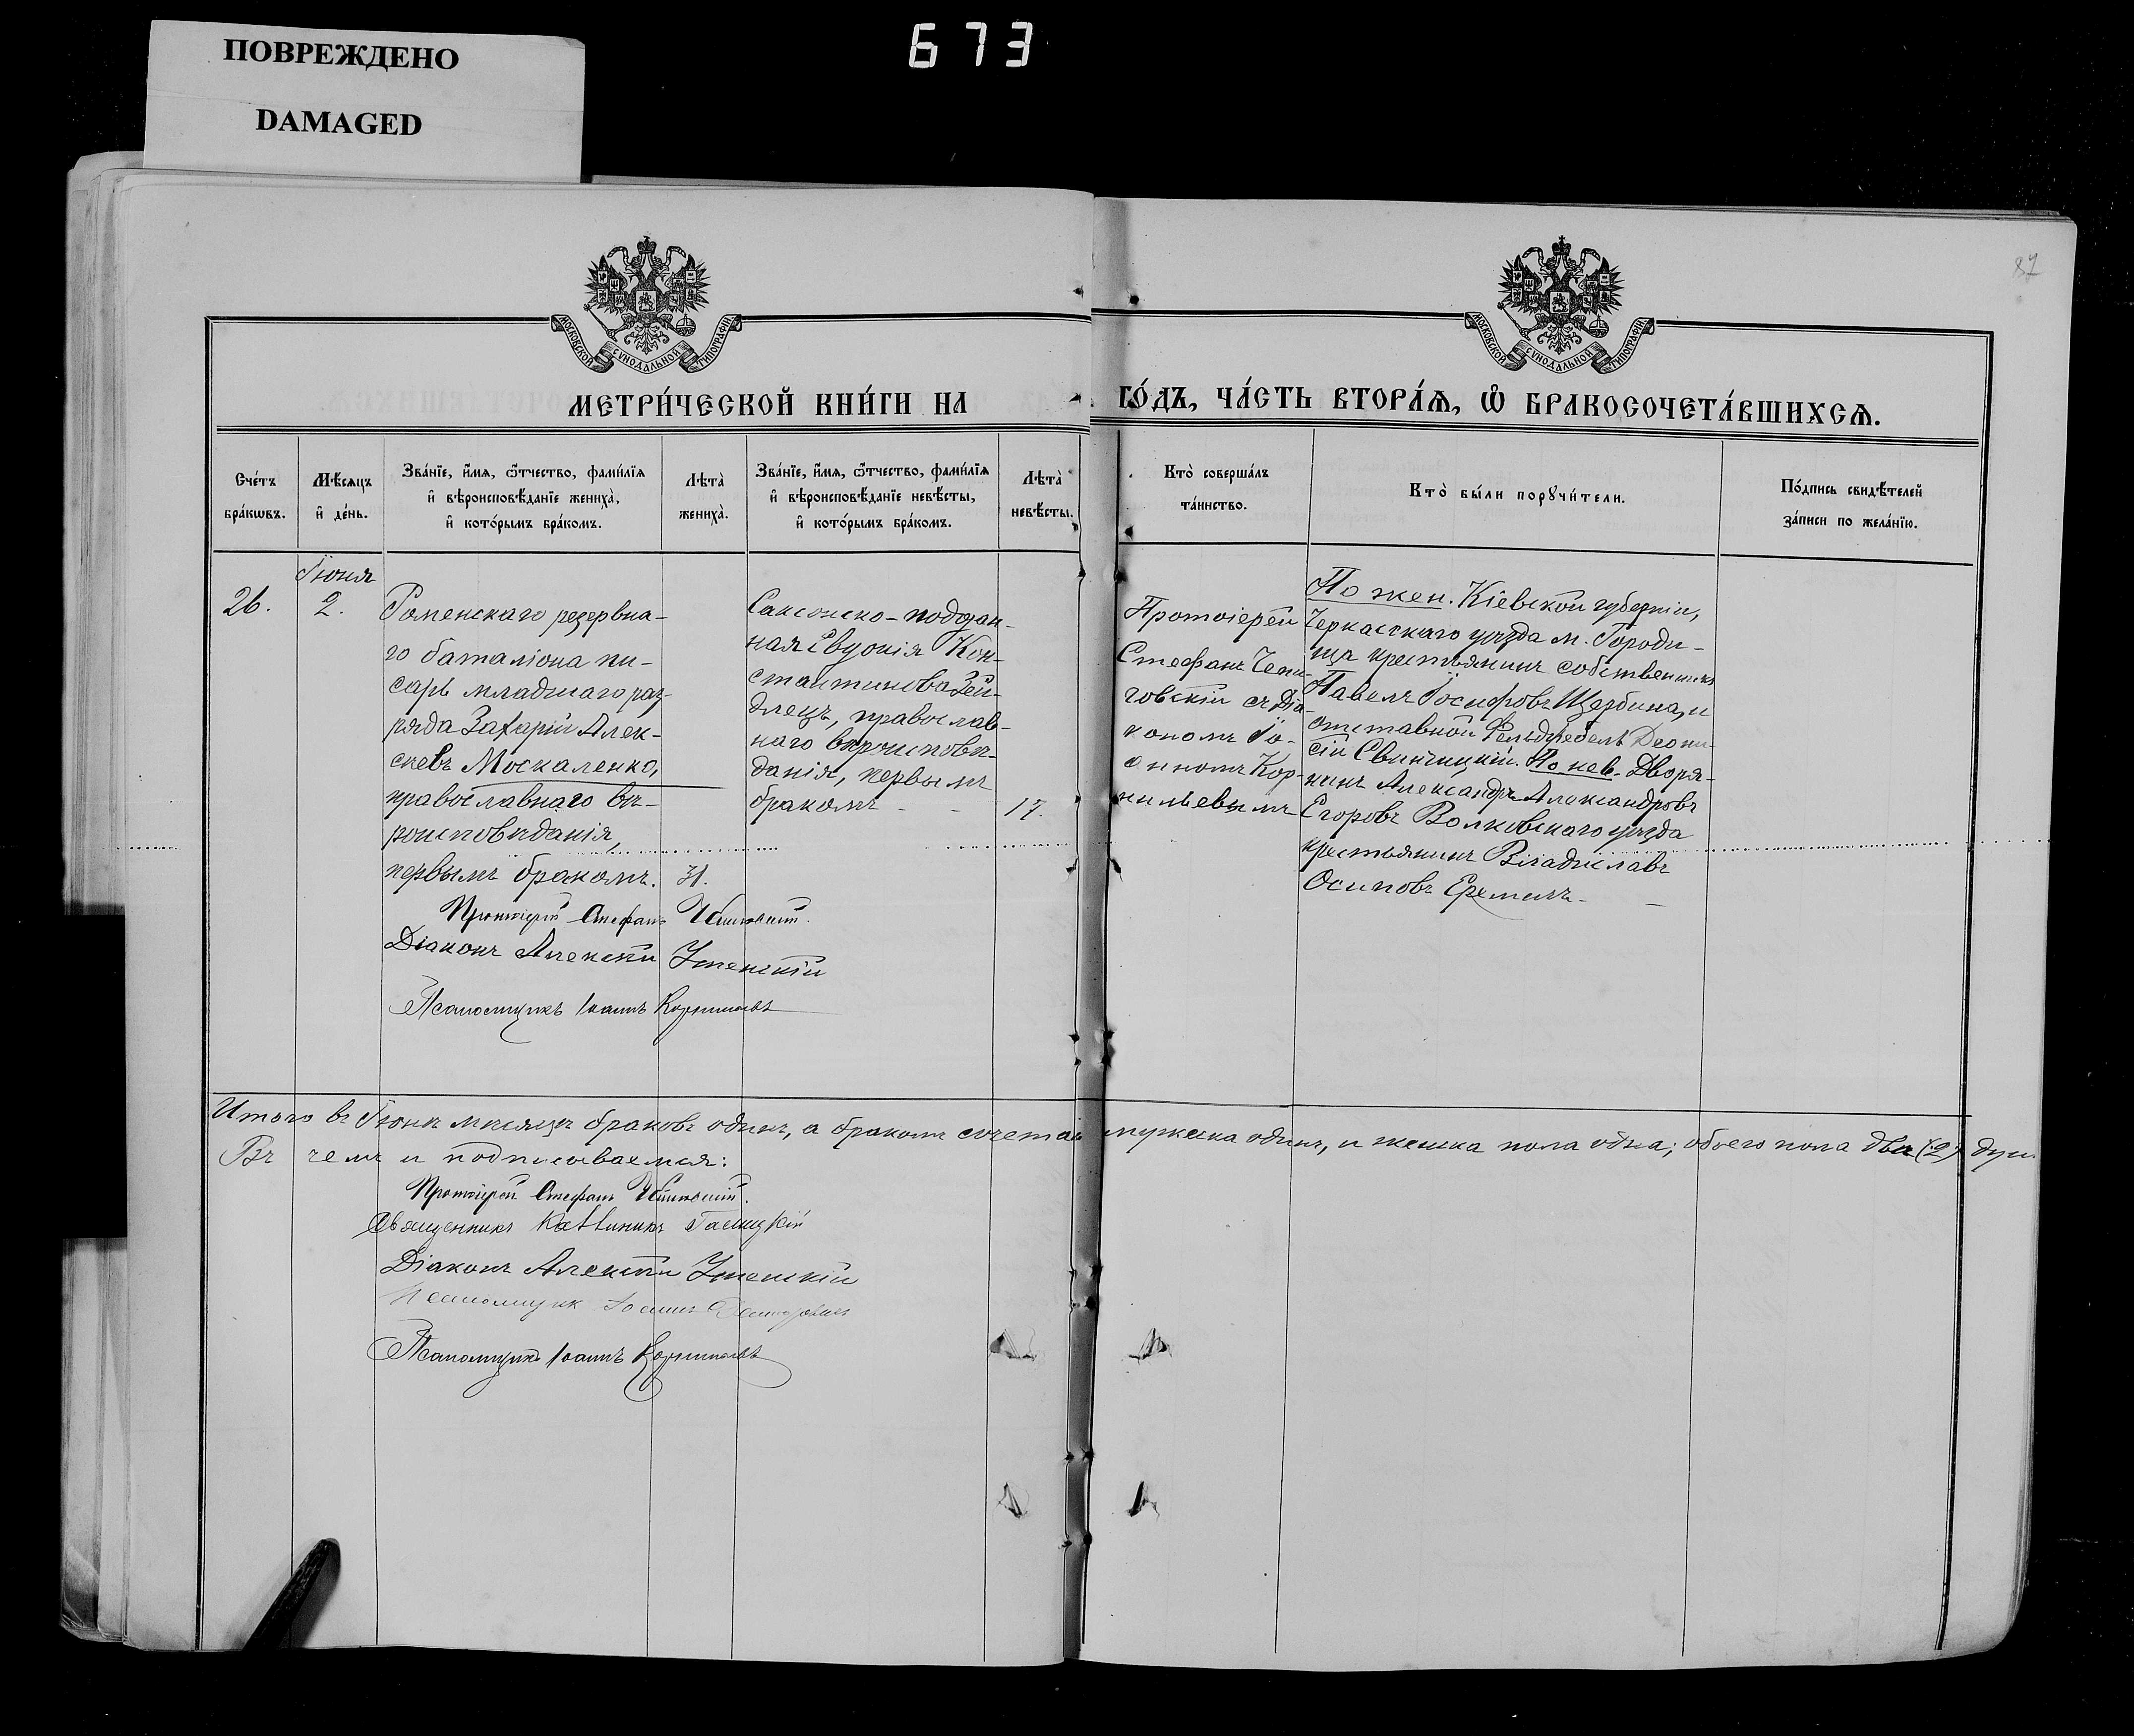 ПОВРЕЖДЕНО
DAMAGED
673
87
МОСКОВСКОЙ СУНОДАЛЬНОЙ ТИПОГРАФІИ
МОСКОВСКОЙ СУНОДАЛЬНОЙ ТИПОГРАФІИ
МЕТРИ́ЧЕСКОЙ КНИ́ГИ НА
ГО́ДЪ, ЧА́СТЬ ВТОРА́Ѧ, Ѡ БРАКОСОЧЕТА́ВШИХСѦ.
Сче́тъ
бра́кѡвъ.
Мѣ́сяцъ
и҆ де́нь.
Зва́нїе, и҆́мя, ѻ҆́тчество, фами́лїя
и҆ вѣроисповѣ́данїе жениха̀,
и҆ кото́рымъ бра́комъ.
Лѣта̀
жениха̀.
Зва́нїе, и҆́мя, ѻ҆́тчество, фами́лїя
и҆ вѣроисповѣ́данїе невѣ́сты,
и҆ кото́рымъ бра́комъ.
Лѣта̀
невѣ́сты.
Кто̀ соверша́лъ
та́инство.
Кто̀ бы́ли порꙋчи́тели.
По́дпись свидѣ́телей
за́писи по жела́нїю.
26.
Іюня
2.
Роменскаго резервна-
го баталіона пи-
сарь младшаго раз-
ряда Захарій Алек-
сѣевъ Москаленко,
православнаго вѣ-
роисповѣданія,
первымъ бракомъ.
31.
Саксонско-поддан-
ная Евдокія Кон-
стантинова Зей-
длецъ, православ-
наго вѣроисповѣ-
данія, первымъ
бракомъ - -
17.
Протоіерей
Стефанъ
говскій съ Діа-
кономъ Іо-
анномъ Кор-
нильевымъ
По жен. Кіевской губерніи,
Черкасскаго уѣзда м. Городи-
ща крестьянинъ собственникъ
Павелъ Іосифовъ Щербина, и
отставной Фельдфебель Деони-
сій Свинчицкій. По нев. Дворя-
нинъ Александръ Александровъ
Егоровъ Волковскаго уѣзда
крестьянинъ Владиславъ
Осиповъ
Протоіерей Стефанъ
Діаконъ Алексѣй Успенскій
Псаломщикъ Іоаннъ Корнильевъ
Итого въ Іюнѣ мѣсяцѣ браковъ одинъ, а бракомъ сочетан мужеска одинъ, и женска пола одна; обоего пола двѣ (2) души
Въ чемъ и подписываемся:
Протоіерей Стефанъ
Священникъ Каллиникъ
Діаконъ Алексѣй Успенскій
Псаломщик Іоаннъ
Псаломщикъ Іоаннъ Корнильевъ